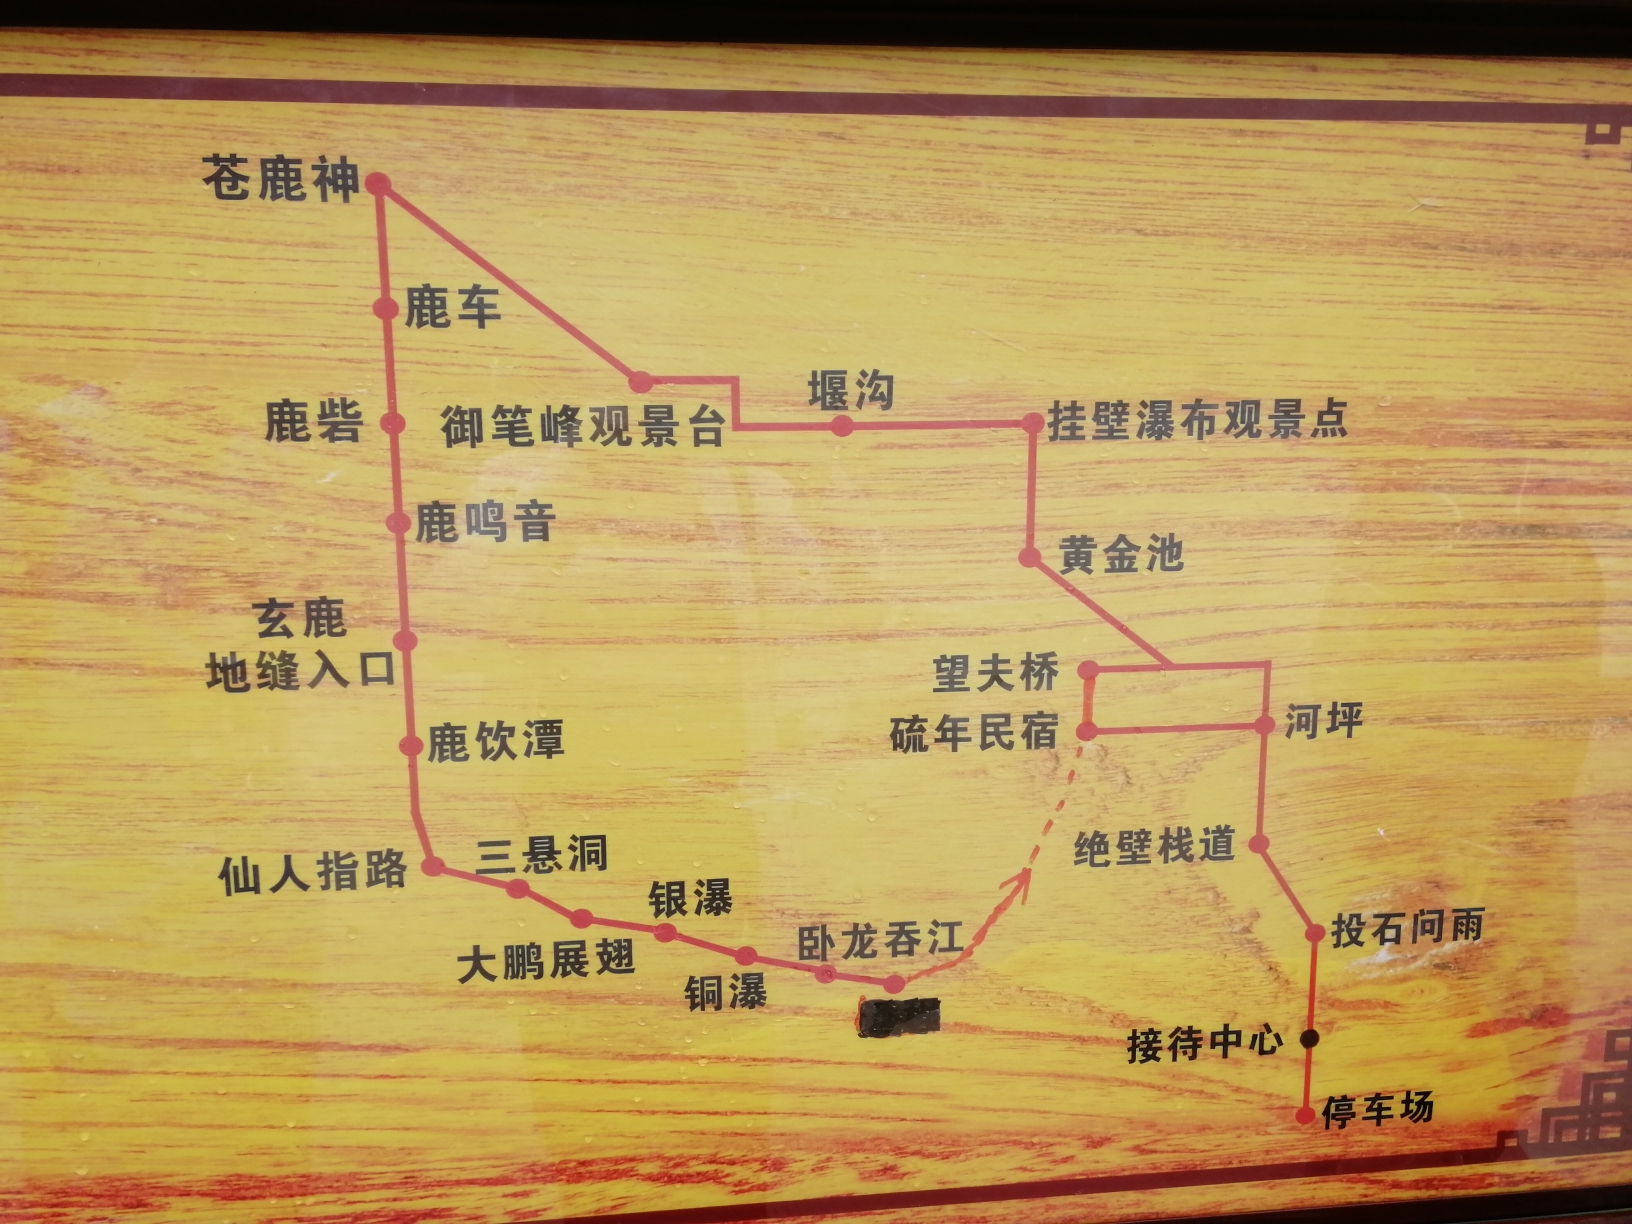 苍鹿神
鹿车
堰沟
鹿砦
御笔峰观景台
挂壁瀑布观景点
鹿鸣音
黄金池
玄鹿
地缝入口
望夫桥
硫年民宿
河坪
鹿饮潭
仙人指路
三悬洞
绝壁栈道
银瀑
大鹏展翅
卧龙吞江
投石问雨
铜瀑
接待中心
停车场